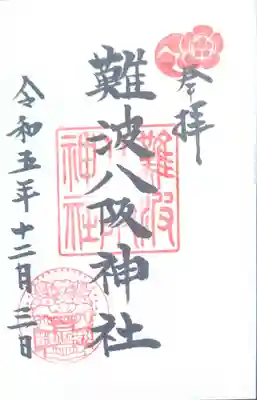 奉拝
難波八阪神社
令和五年十二月三日
難波八阪神社